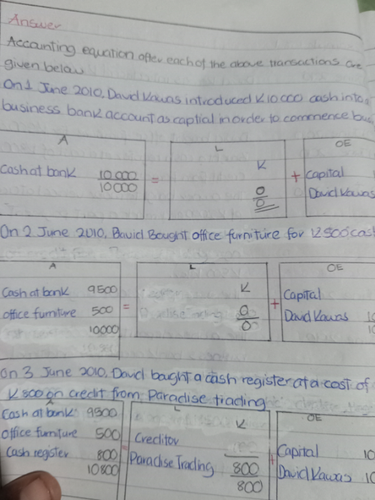 Answer
Accounting equation after each of the above transactions are
given below
On 1 June 2010, David Kawas introduced K10 000 cash into
business bank account as captial in order to commence
A L OE
Cash at bank 10,000 = K + Capital
10000 0 David Kawas
0
On 2 June 2010, David Bought office furniture for K500 cash
A L OE
Cash at bank 9500 = K + Capital
office furniture 500 0 David Kawas
10000 0
On 3 June 2010, David baught a cash register at a cost of
K 800 on credit from Paradise trading
Cash at bank 9500 L K OE
office furniture 500 Creditor Capital
Cash register 800 Paradise Trading 800 + David Kawas
10800 800